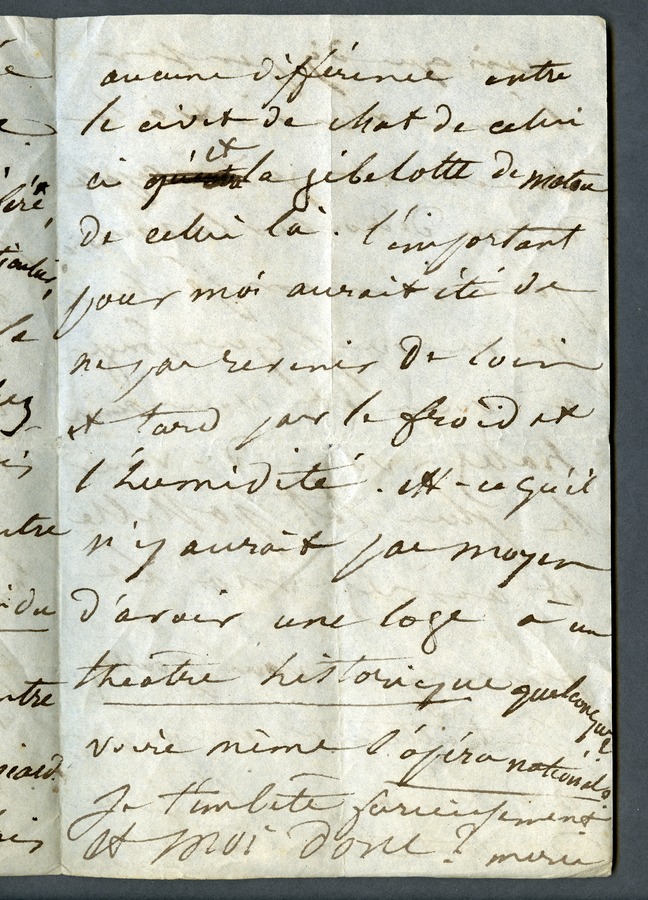 aucune différence entre
le civet de chat de celui
ci et la gibelotte de matou
de celui là. l'important
pour moi aurait été de
ne pas revenir de loin
et tard par le froid et
l'humidité. est-ce qu'il
n'y aurait pas moyen
d'avoir une loge à un
théâtre historique quelconque
voire même l'opéra national.
Je t'embête furieusement
et moi donc? merci
ntre
du
ntre